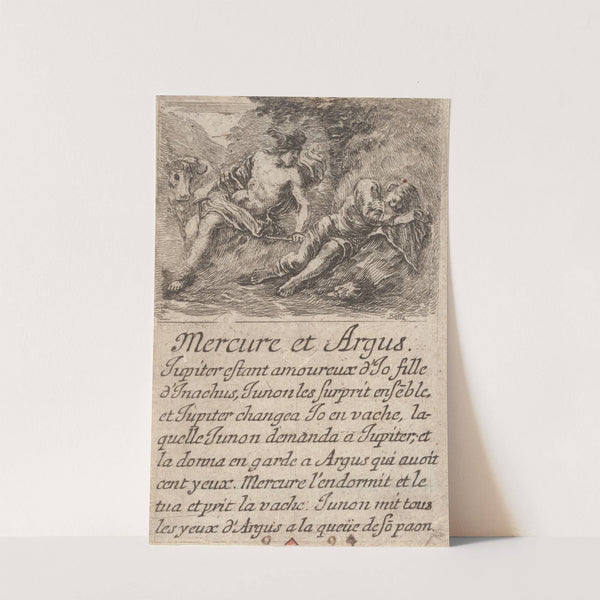 Mercure et Argus.
Iupiter estant amoureux d'Io fille
d'Inachus, Iunon les surprit ensẽble,
et Iupiter changea Io en vache, la-
quelle Iunon demanda a Iupiter, et
la donna en garde a Argus qui auoit
cent yeux. Mercure l'endormit et le
tua et prit la vache. Iunon mit tous
les yeux d'Argus a la queüe de sõ paon.